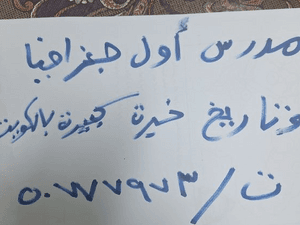 مدرس أول جغرافيا
وتاريخ خبرة كبيرة بالكويت
ت/ ٥٠٧٧٧٩٧٣